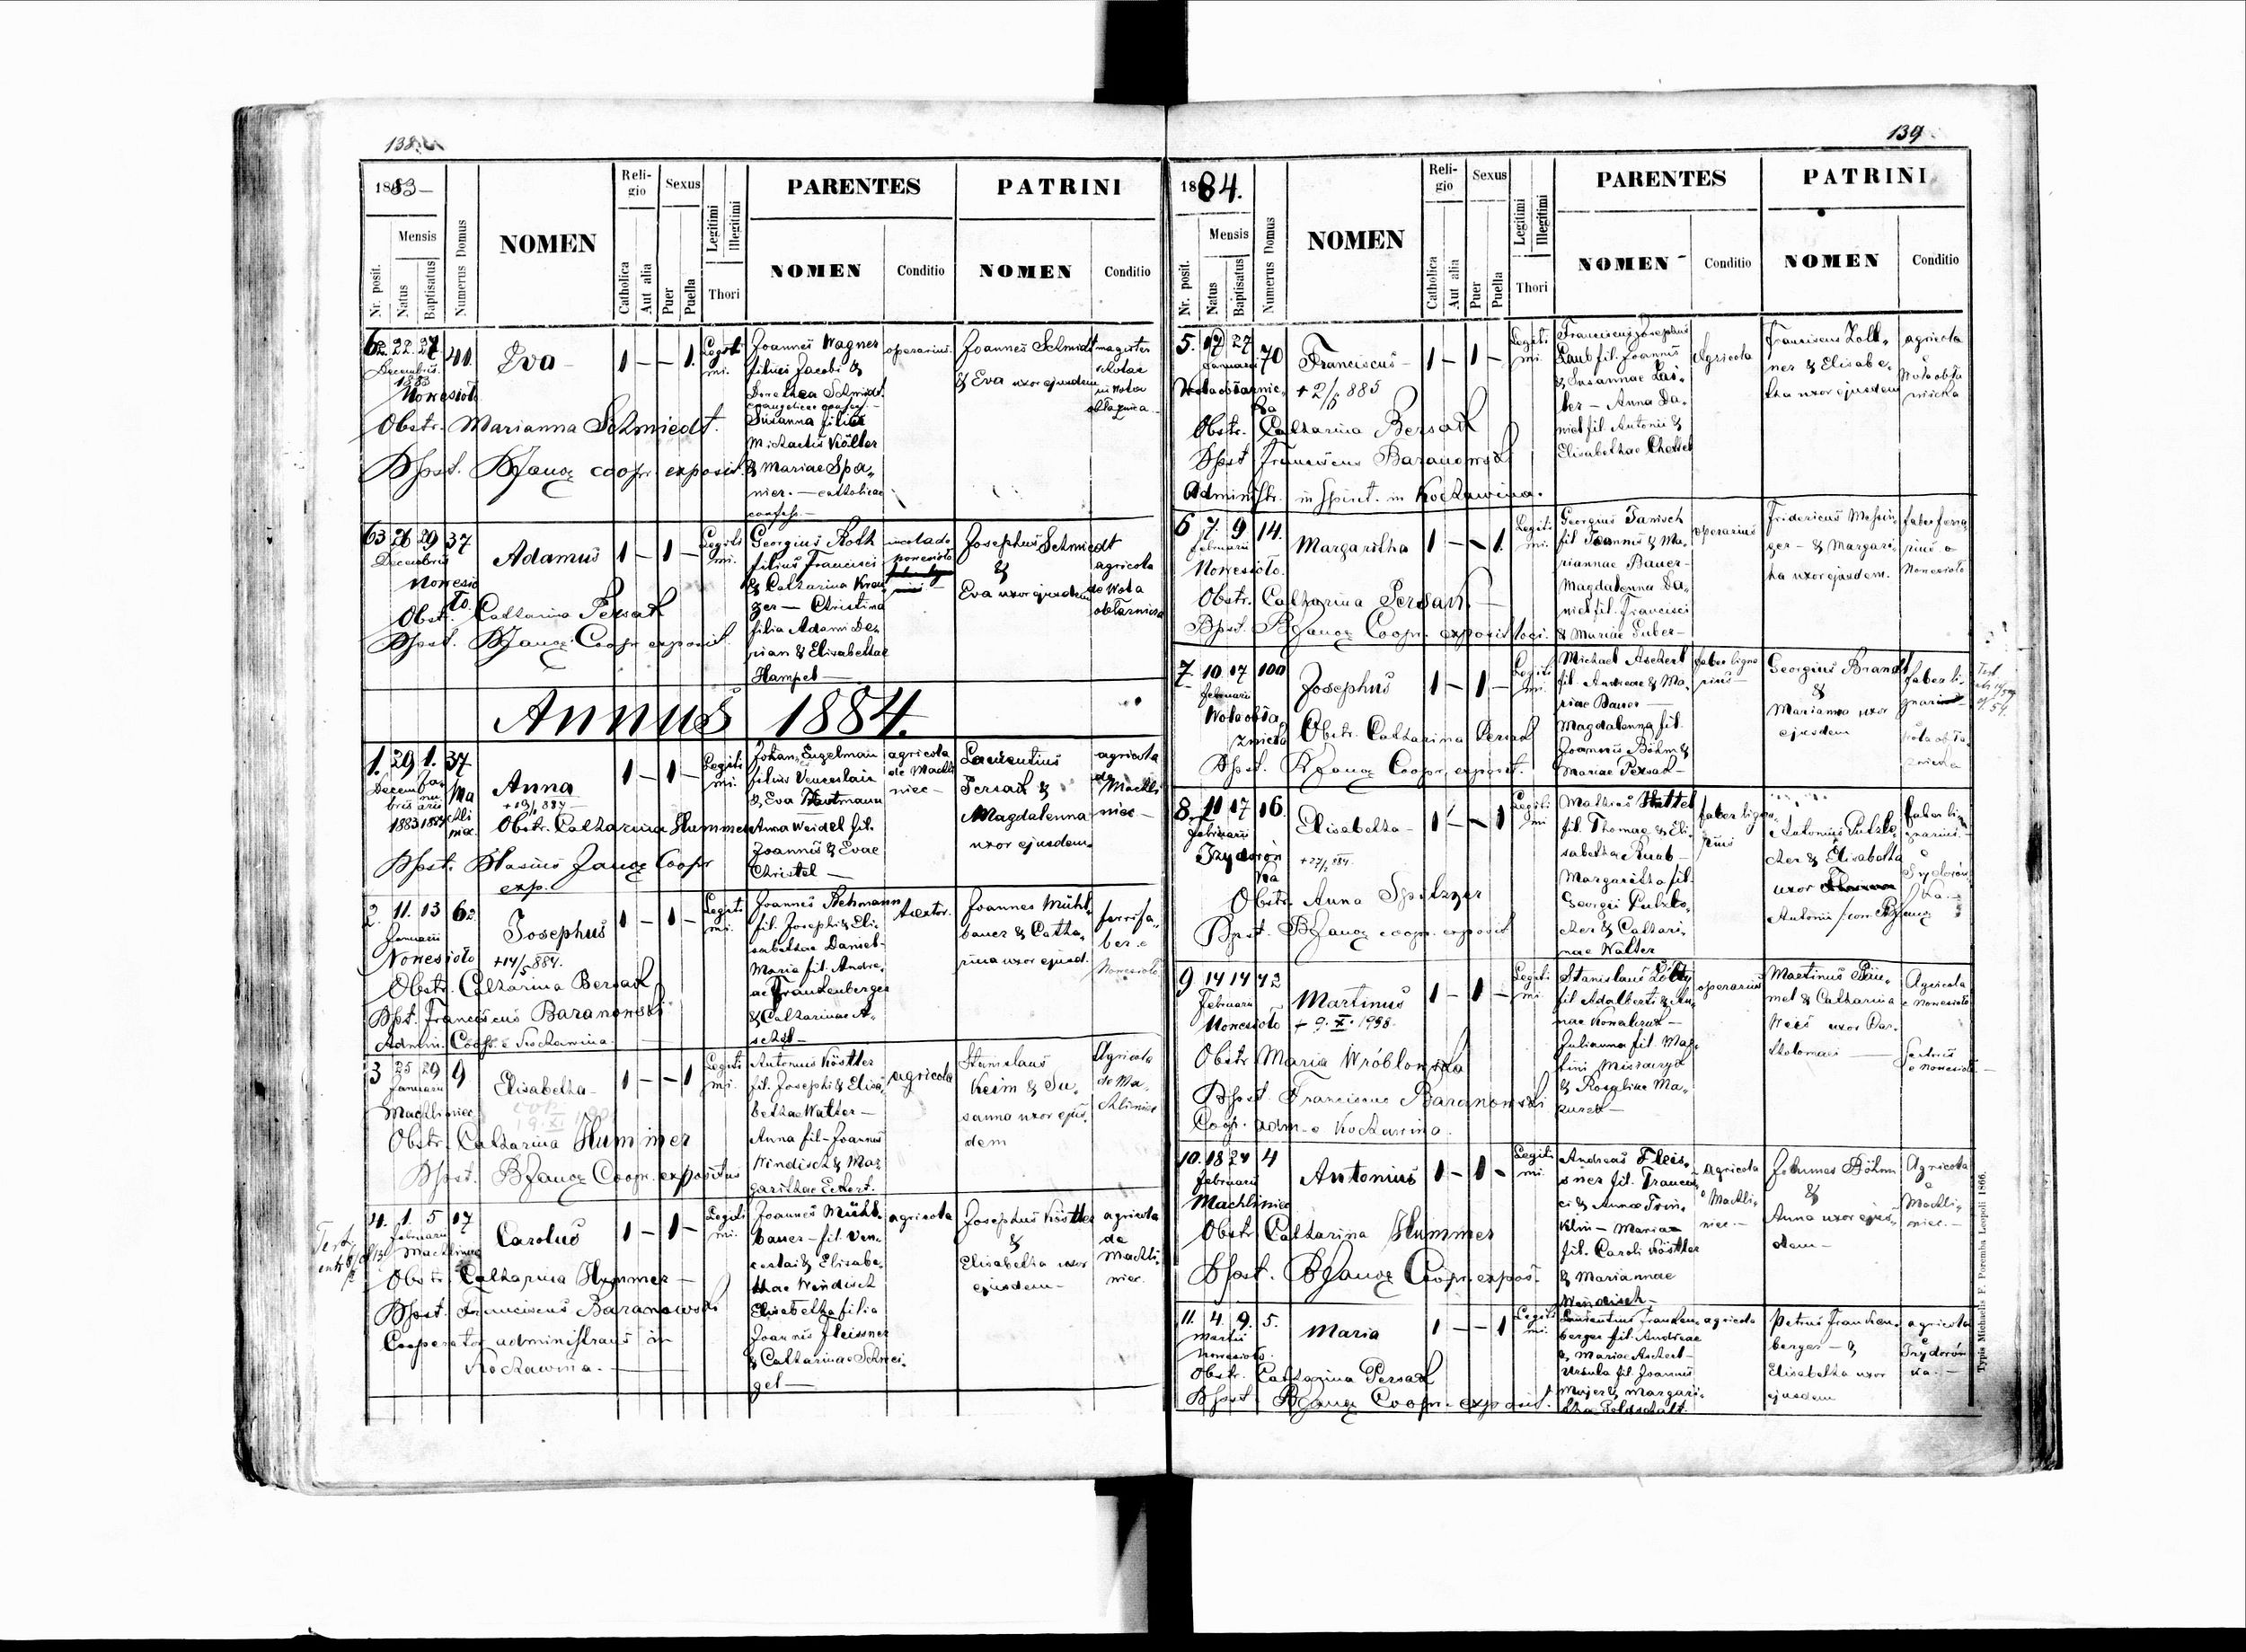 138
1883
Nr. posit.
Mensis
Natus
Baptisatus
Numerus Domus
NOMEN
Reli-
gio
Catholica
Aut alia
Sexus
Puer
Puella
Legitimi
Illegitimi
Thori
PARENTES
NOMEN
Conditio
PATRINI
NOMEN
Conditio
62. 22. 27 41.
Decembris
1883
Nowesioło
Eva
1 — — 1.
Legiti
mi.
Joannes Wagner
filius Jacobi &
Dorothea Schmidt
Susanna filia
Michaelis Költer
& Mariae Spa-
nier. — catholicae
confess. —
operarius.
Joannes Schmidt
& Eva uxor ejusdem
magister
scholae
in Wola
obłaznica
Obstr. Marianna Schmiedt.
Bpst. BJanoz coopr. exposit.
63 26 29 37
Decembris
Nowesio
ło.
Adamus
1 — 1 —
Legiti
mi.
Georgius Roth
filius Francisci
& Catharina Krau
zer — Christina
filia Adami De-
pian & Elisabethae
Hampel —
incola de
Nowesioło
Josephus Schmiedt
&
Eva uxor ejusdem
agricola
de Wola
obłaznica
Obst. Catharina Persak
Bpst. BJanoz Coopr exposit.
Annus 1884.
1. 29 1. 37
Decem Jan
bris uarii
1883 1884
Ma
chli
niec.
Anna
1 — 1 —
Legiti
mi.
Johan. Engelman
filius Venceslai
& Eva Hartmann
Anna Weidel fil.
Joannis & Evae
Christel —
agricola
de Machli
niec —
Laurentius
Persak &
Magdalenna
uxor ejusdem.
agricola
de
Machli
niec —
Obstr. Catharina Hummer
Bpst. Blasius Janoz Coopr
exp.
2. 11. 13 62
Januarii
Nowesioło
Josephus
+14/5 884.
1 — 1 —
Legiti
mi.
Joannes Rehmann
fil. Josephi & Eli-
sabethae Daniel-
Maria fil. Andre-
ae Frankenberger
& Catharinae A-
schel —
Joannes Mühl-
bauer & Catha-
rina uxor ejusd.
ferrifa-
ber e
Nowesioło
Obstr. Catharina Bersak
Bpst. Franciscus Baranowski
Admin. Coopr. e Kochawina
3 25 29 9
Januarii
Machliniec
Elisabetha
1 — — 1
Legiti
mi.
Antonius Köstler
fil. Josephi & Elisa-
bethae Walter —
Anna fil- Joannis
Windisch & Mar-
garithae Eckert.
agricola
Stanislaus
Keim & Su-
sanna uxor ejus-
dem
Agricola
de Ma-
chliniec
Obstr. Catharina Hummer
Bpst. BJanoz Coopr. expositus
4. 1. 5 17
Februarii
Machliniec
Carolus
1 — 1 —
Legiti
mi.
Joannes Mühl-
bauer — fil. Ven-
ceslai & Elisabe-
thae Windisch
Elisabetha filia
Joannis Fleissner
& Catharinae Schnei-
gel —
agricola
Josephus Köstler
&
Elisabetha uxor
ejusdem —
agricola
de
Machli-
niec.
Obstr. Catharina Hummer —
Bpst. Franciscus Baranowski
Cooperator administrans in
Kochawina.
139
1884.
Nr. posit.
Mensis
Natus
Baptisatus
Numerus Domus
NOMEN
Reli-
gio
Catholica
Aut alia
Sexus
Puer
Puella
Legitimi
Illegitimi
Thori
PARENTES
NOMEN
Conditio
PATRINI
NOMEN
Conditio
5. 17 27 70
Januarii
Wola obłaznic-
ka
Franciscus —
1 — 1 —
Legiti
mi.
Franciscus Josephus
Laub fil. Joannis
& Susannae Lai-
ber — Anna Da-
niel fil. Antonii &
Elisabethae
Agricola
Franciscus Zoll-
ner & Elisabe-
tha uxor ejusdem
agricola
Wola obła
znicka
Obstr. Catharina Bersak
Bpst Franciscus Baranowski
Administr. in Spirit. in Kochawina.
6 7. 9 14.
Februarii
Nowesioło.
Margaritha
1 — — 1.
Legiti
mi.
Georgius Janisch
fil Joannis & Ma-
riannae Bauer —
Magdalenna Da-
niel fil. Francisci
& Mariae Huber —
operarius
Fridericus Messin-
ger — & Margari-
tha uxor ejusdem.
faber ferra
rius e
Nowesioło
Obstr. Catharina Persak. —
Bpst. BJanoz Coopr. exposit loci.
7. 10 17 100
Februarii
Wola obła-
znicka
Josephus
1 — 1 —
Legiti
mi.
Michael Aschert
fil. Andreae & Ma-
riae Bauer —
Magdalenna fil.
Joannis Böhm &
Mariae Persak —
faber ligna
rius —
Georgius Brandt
&
Marianna uxor
ejusdem
faber li-
gnarius
Wola obła-
znicka
Obstr. Catharina Persak
Bpst. BJanoz Coopr. exposit.
8. 11 17 16.
Februarii
Izydorów
ka
Elisabetha —
1 — — 1
Legiti
mi
Mathias Hüttel
fil. Thomae & Eli-
sabetha Raab —
Margaritha fil.
Georgii Putzlo-
cher & Cathari-
nae Walter
faber ligna-
rius
Antonius Putzlo-
cher & Elisabetha
uxor
Antonii
faber li-
gnarius.
Izydorów
ka —
Obstr. Anna Spitzer
Bpst. BJanoz coopr. exposit
9 14 14 42
Februarii
Nowesioło
Martinus
+ 9. X. 1958.
1 — 1 —
Legiti
mi.
Stanislaus Żołty
fil Adalberti & An-
nae Kowalczuk —
Julianna fil. Mar-
tini Missiuryk
& Rosaliae Ma-
zurek —
operarius
Martinus
& Catharina
Weis uxor Bar-
tholomaei —
Agricola
e Nowesioło
e Nowesioło
Obstr Maria Wróblowska
Bpst. Franciscus Baranowski
Coopr. adm- e Kochawina.
10. 18 24 4
Februarii
Machliniec
Antonius
1 — 1 —
Legiti
mi.
Andreas Fleis-
sner fil. Francis-
ci & Annae
— Maria
fil. Caroli Köstler
& Mariannae
Windisch —
agricola
Machli-
niec. —
Johannes Böhm
&
Anna uxor ejus-
dem —
Agricola
Machli-
niec. —
Obstr Catharina Hummer
Bpst. BJanoz Coopr. expos.
11. 4. 9. 5.
Martii
Nowesioło.
Maria
1 — — 1
Legiti
mi.
Laurentius Franken-
berger fil. Andreae
& Mariae Aschert —
Ursula fil. Joannis
Majer & Margari-
tha
agricola
Petrus Franken-
berger — &
Elisabetha uxor
ejusdem
agricola
Izydorów
ka. —
Obstr. Catharina Persak
Bpst. BJanoz Coopr. exposit.
Typis Michaelis F. Poremba Leopoli 1866.